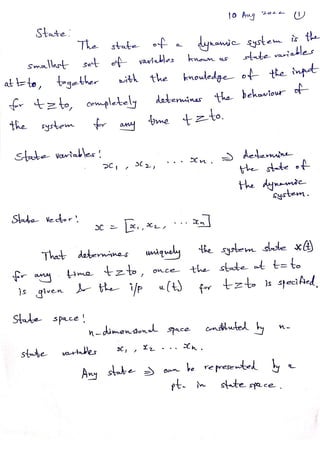 10 Aug 2022 ①
State:
The state of a dynamic system is the
smallest set of variables known as state variables
at t=to, together with the knowledge of the input
for t≥to, completely determines the behaviour of
the system for any time t≥to.
State variables:
x₁, x₂, ... xn. ⇒ determine
the state of
the dynamic
system.
State vector:
x = [x₁, x₂, ... xn]
That determines uniquely the system state x(t)
for any time t≥to, once the state at t=to
is given & the i/p u(t) for t≥to is specified.
State space:
n-dimensional space constituted by n-
state variables x₁, x₂ ... xn.
Any state ⇒ can be represented by a
pt. in state space.